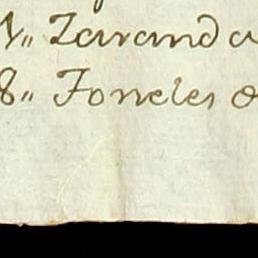 Zarand a
8„ Foneles